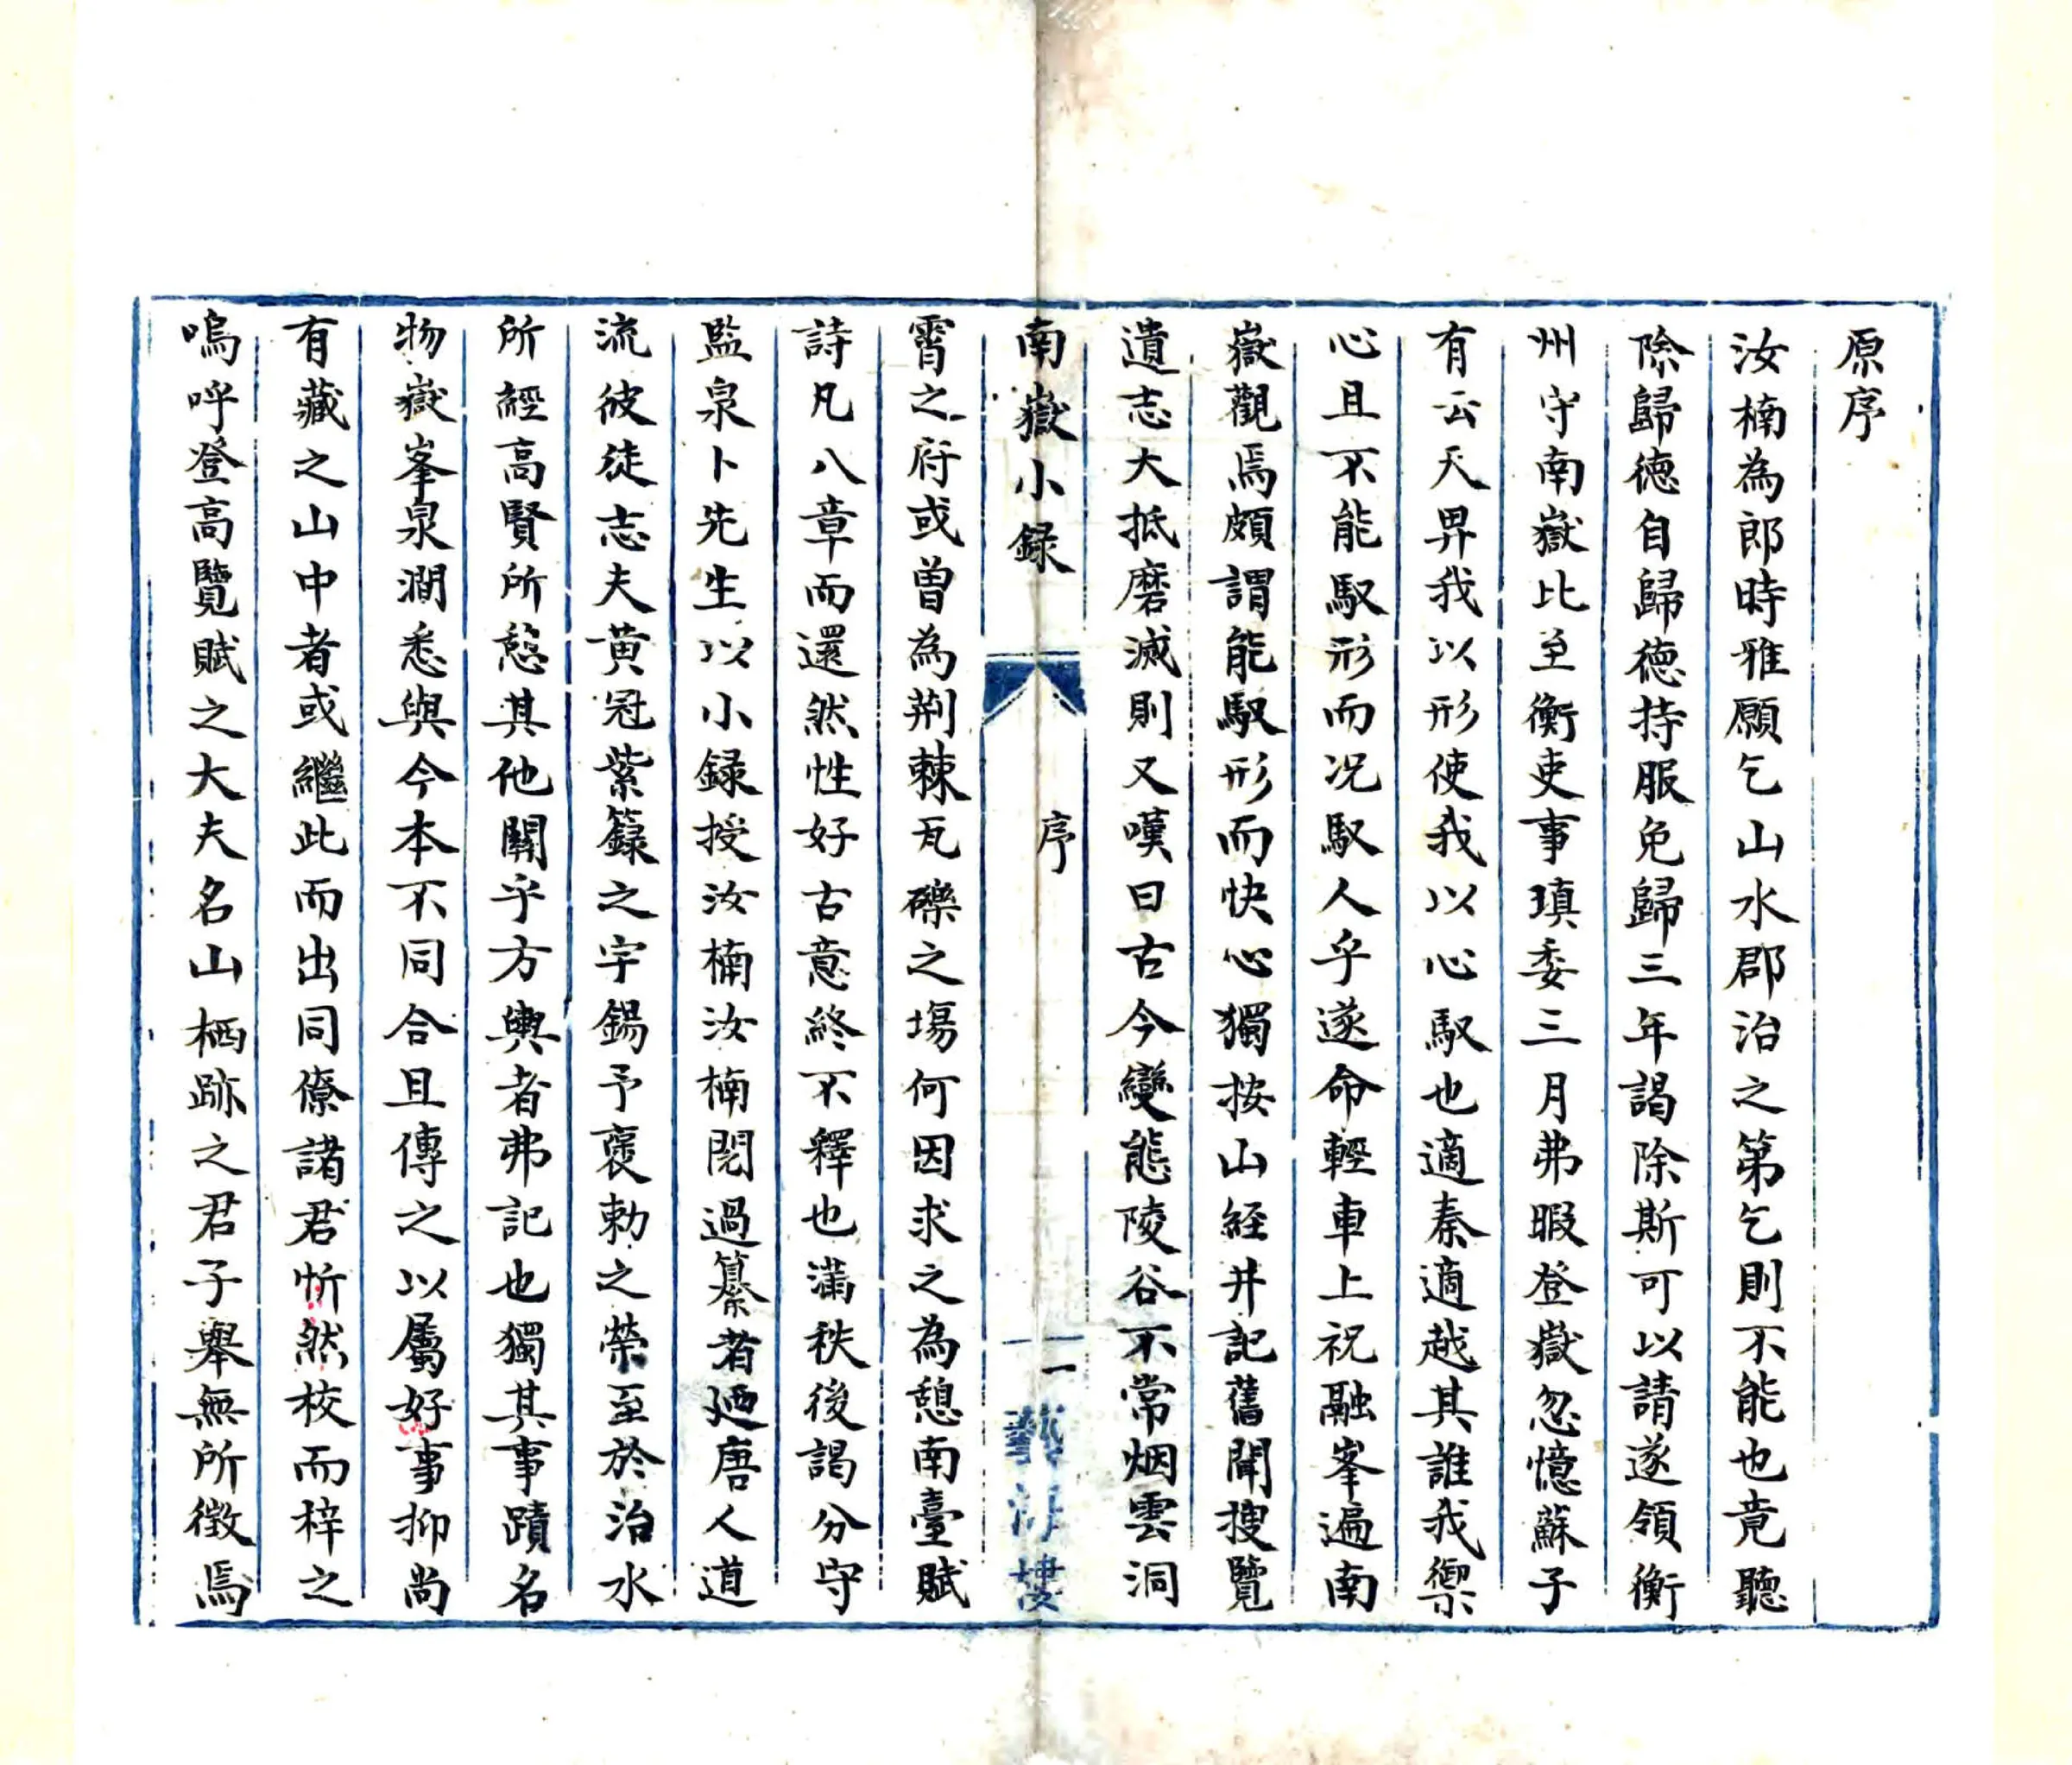 原序
汝楠為郎時雅願乞山水郡治之第乞則不能也竟聽
除歸德自歸德持服免歸三年謁除斯可以請遂領衡
州守南嶽比至衡吏事瑱委三月弗暇登嶽忽憶蘇子
有云天畀我以形使我以心馭也適秦適越其誰我禦
心且不能馭形而况馭人乎遂命輕車上祝融峯遍南
嶽觀焉頗謂能馭形而快心獨按山經井記舊聞搜覽
遺志大抵磨滅則又嘆曰古今變態陵谷不常烟雲洞
南嶽小録 序 一 藝海樓
霄之府或曾為荆棘瓦礫之場何因求之為憩南臺賦
詩凡八章而還然性好古意終不釋也滿秩後謁分守
監泉卜先生以小録授汝楠汝楠閱過纂者廼唐人道
流彼徒志夫黄冠紫籙之宇錫予襃勅之榮至於治水
所經高賢所憩其他關乎方輿者弗記也獨其事蹟名
物嶽峯泉澗悉與今本不同合且傳之以屬好事抑尚
有藏之山中者或繼此而出同僚諸君忻然校而梓之
嗚呼登高覽賦之大夫名山栖跡之君子舉無所徵焉